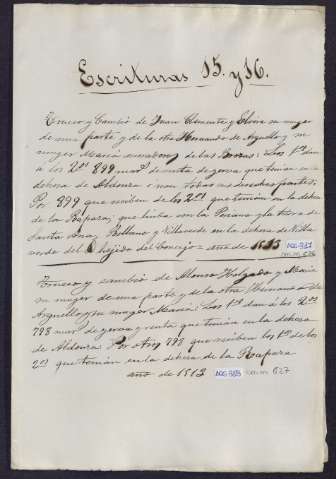 Escrituras 15. y 16.
Trueco y Cambio de Juan Clemente y Elvira su muger
de una parte y de la otra Hernando de Arguello y su
muger María
á los 2os 899 mars de renta de yerva que tenian en la
dehesa de Aldeura
Por 899 que reciben de los 2os que tenían en la dehesa
de la Rapara, que linda con la
Santa Ana, y Villaverde en la dehesa de Villa
verde del Ehejido del Concejo = año de 1513
Trueco y cambio de Alonso Holgado y María
su muger de una parte y de la otra Hernando de
Arguello y su muger María: Los 1os dan á los 2os
798 mars de yerva y renta que tenían en la dehesa
de Aldeura. Por otros 798 que reciben los 1os de los
2os que tenían en la dehesa de la Rapara
año de 1513